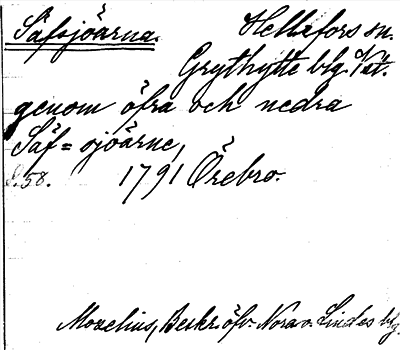 Säfsjöarna. Hellefors sn.
Grythytte blg. Vst.
genom öfra och nedra
Säf=sjöarne,
s. 58. 1791 Örebro.
Mozelius, Beskr. öfv. Nora o. Lindes blg.